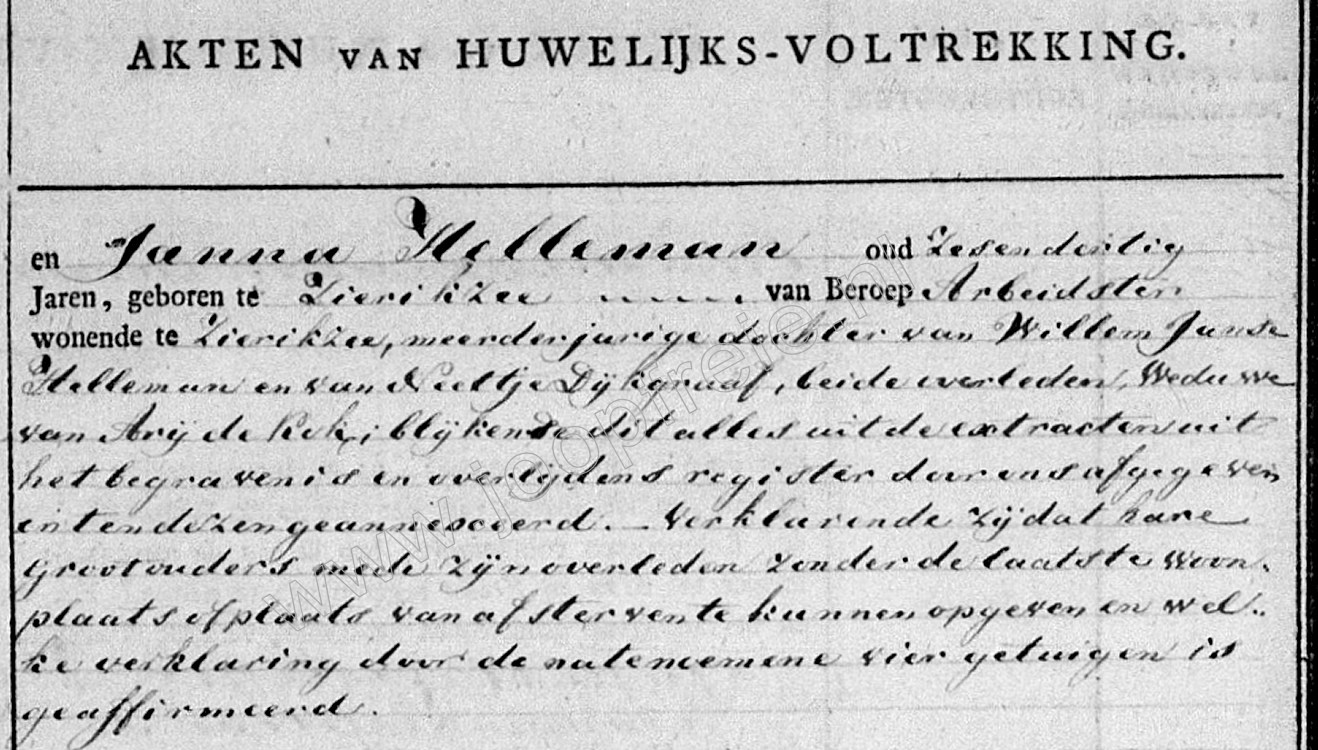 AKTEN VAN HUWELIJKS-VOLTREKKING.
en Janna Stelleman oud Zesendertig
Jaren, geboren te Zierikzee van Beroep Arbeidster
wonende te Zierikzee, meerderjarige dochter van Willem Janse
Stelleman en van Neeltje Dijkgraaf, beide overleden, Weduwe
van Arij de Kok; blijkende dit alles uit de extracten uit
het begravenis en overlijdens register door ons afgegeven
en ten dezen geannexeerd. Verklarende zij dat hare
Grootouders mede zijn overleden zonder de laatste woon-
plaats of plaats van afsterven te kunnen opgeven en wel-
ke verklaring door de natenoemene vier getuigen is
geaffirmeerd.
www.jooptreie.nl